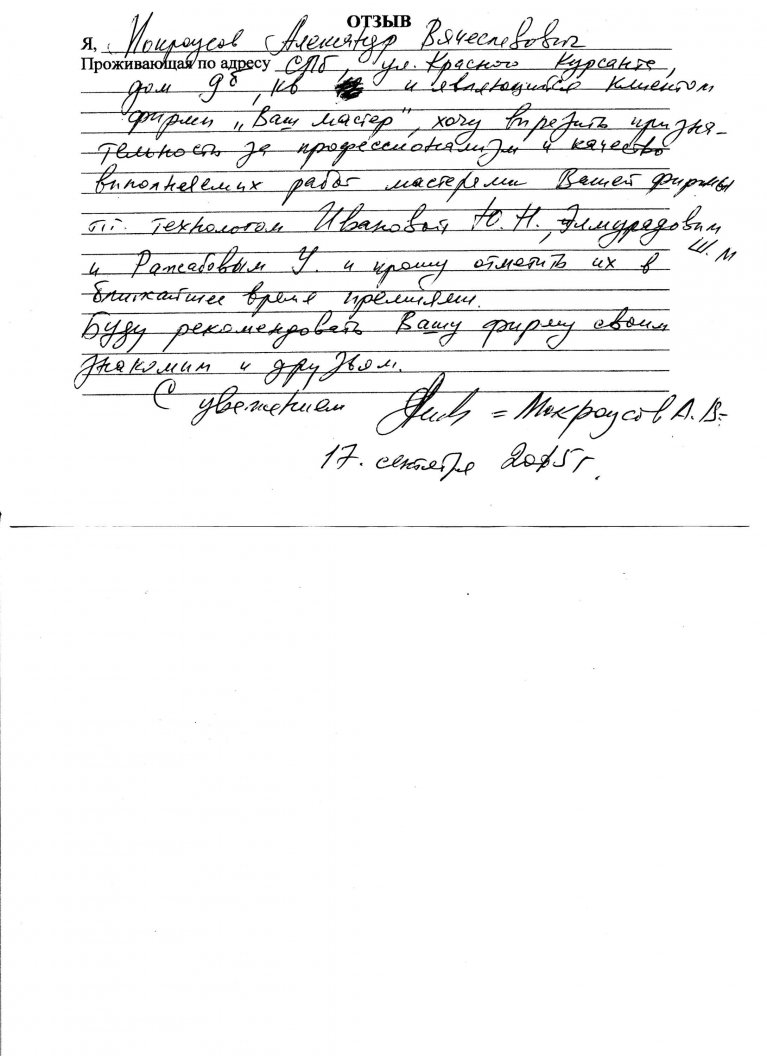 ОТЗЫВ
Я, Мокроусов Александр Вячеславович
Проживающая по адресу СПб, ул. Красного Курсанта,
дом 9б, кв и являющийся клиентом
фирмы „Ваш мастер", хочу выразить призна-
тельность за профессионализм и качество
выполняемых работ мастерами Вашей фирмы
технологом Ивановой Ю. Н., Элмурадовым
Ш. М
и Ражабовым У. и прошу отметить их в
ближайшее время премиями.
Буду рекомендовать Вашу фирму своим
знакомым и друзьям.
С уважением = Мокроусов А. В.
17. сентября 2015г.